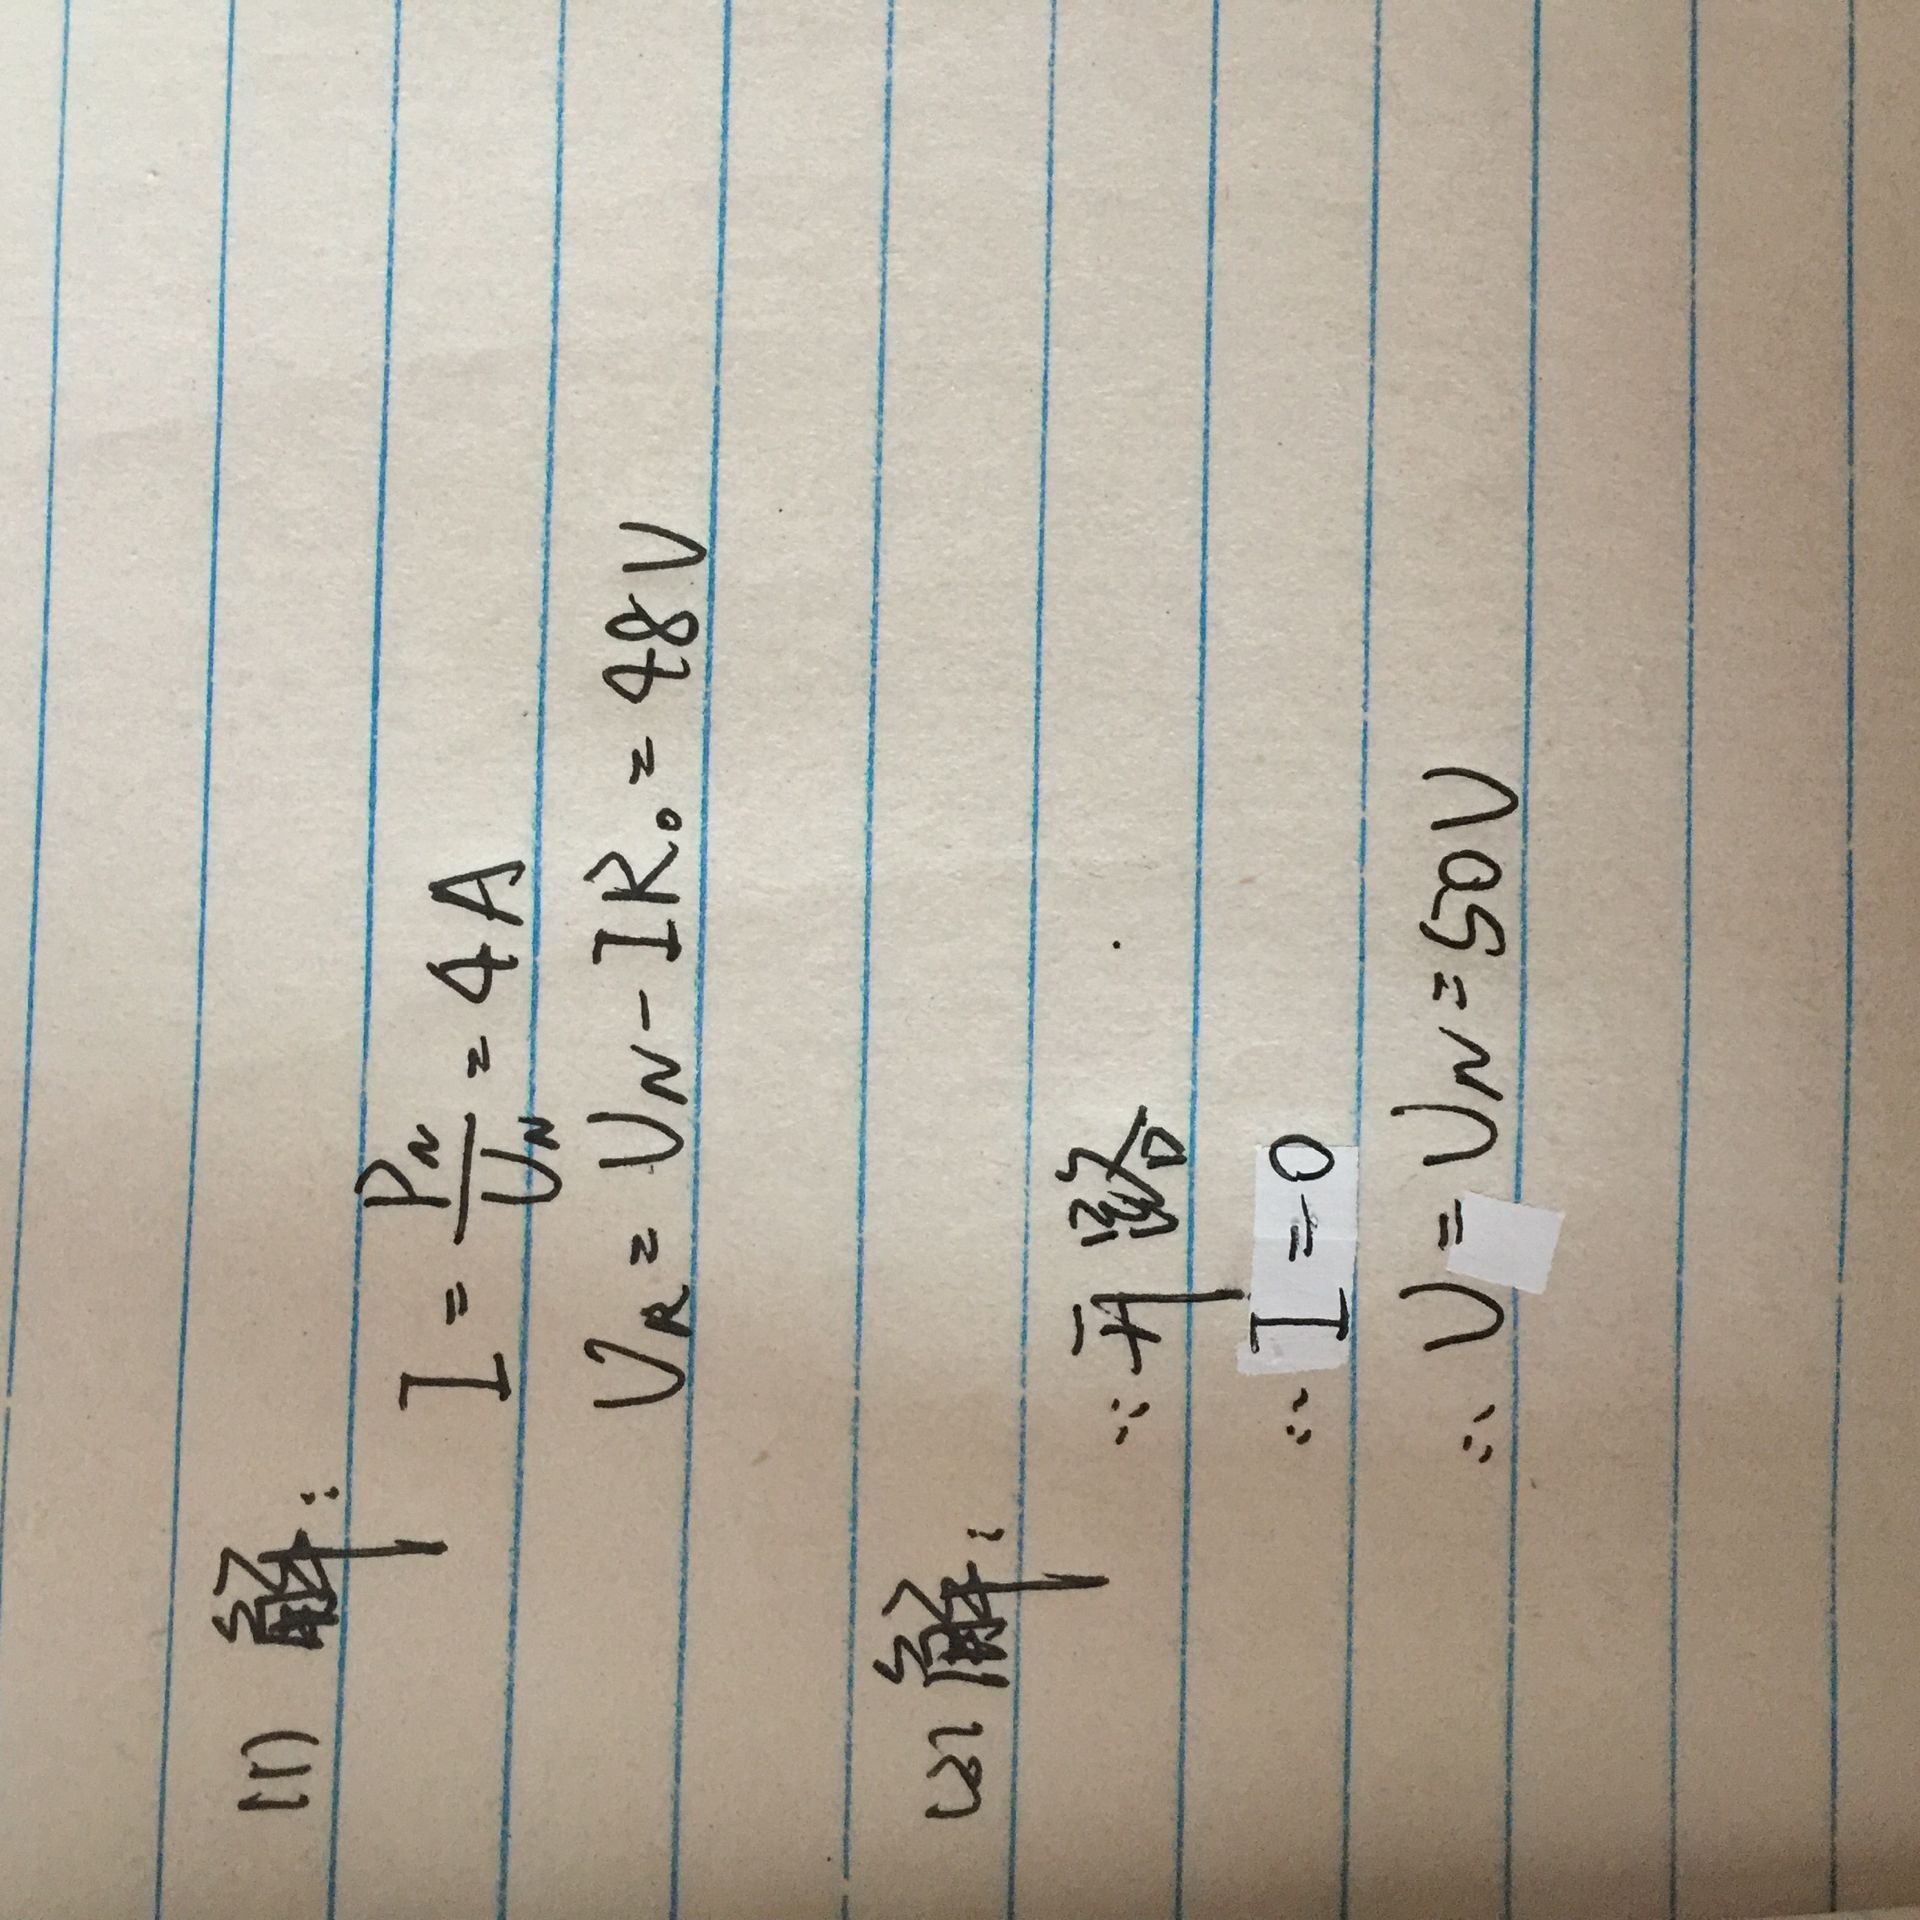 (1) 解:
I = P_N / U_N = 4A
U_R = U_N - IR₀ = 48V
(2) 解:
∵ 开路
∴ I = 0
∴ U = U_N = 50V